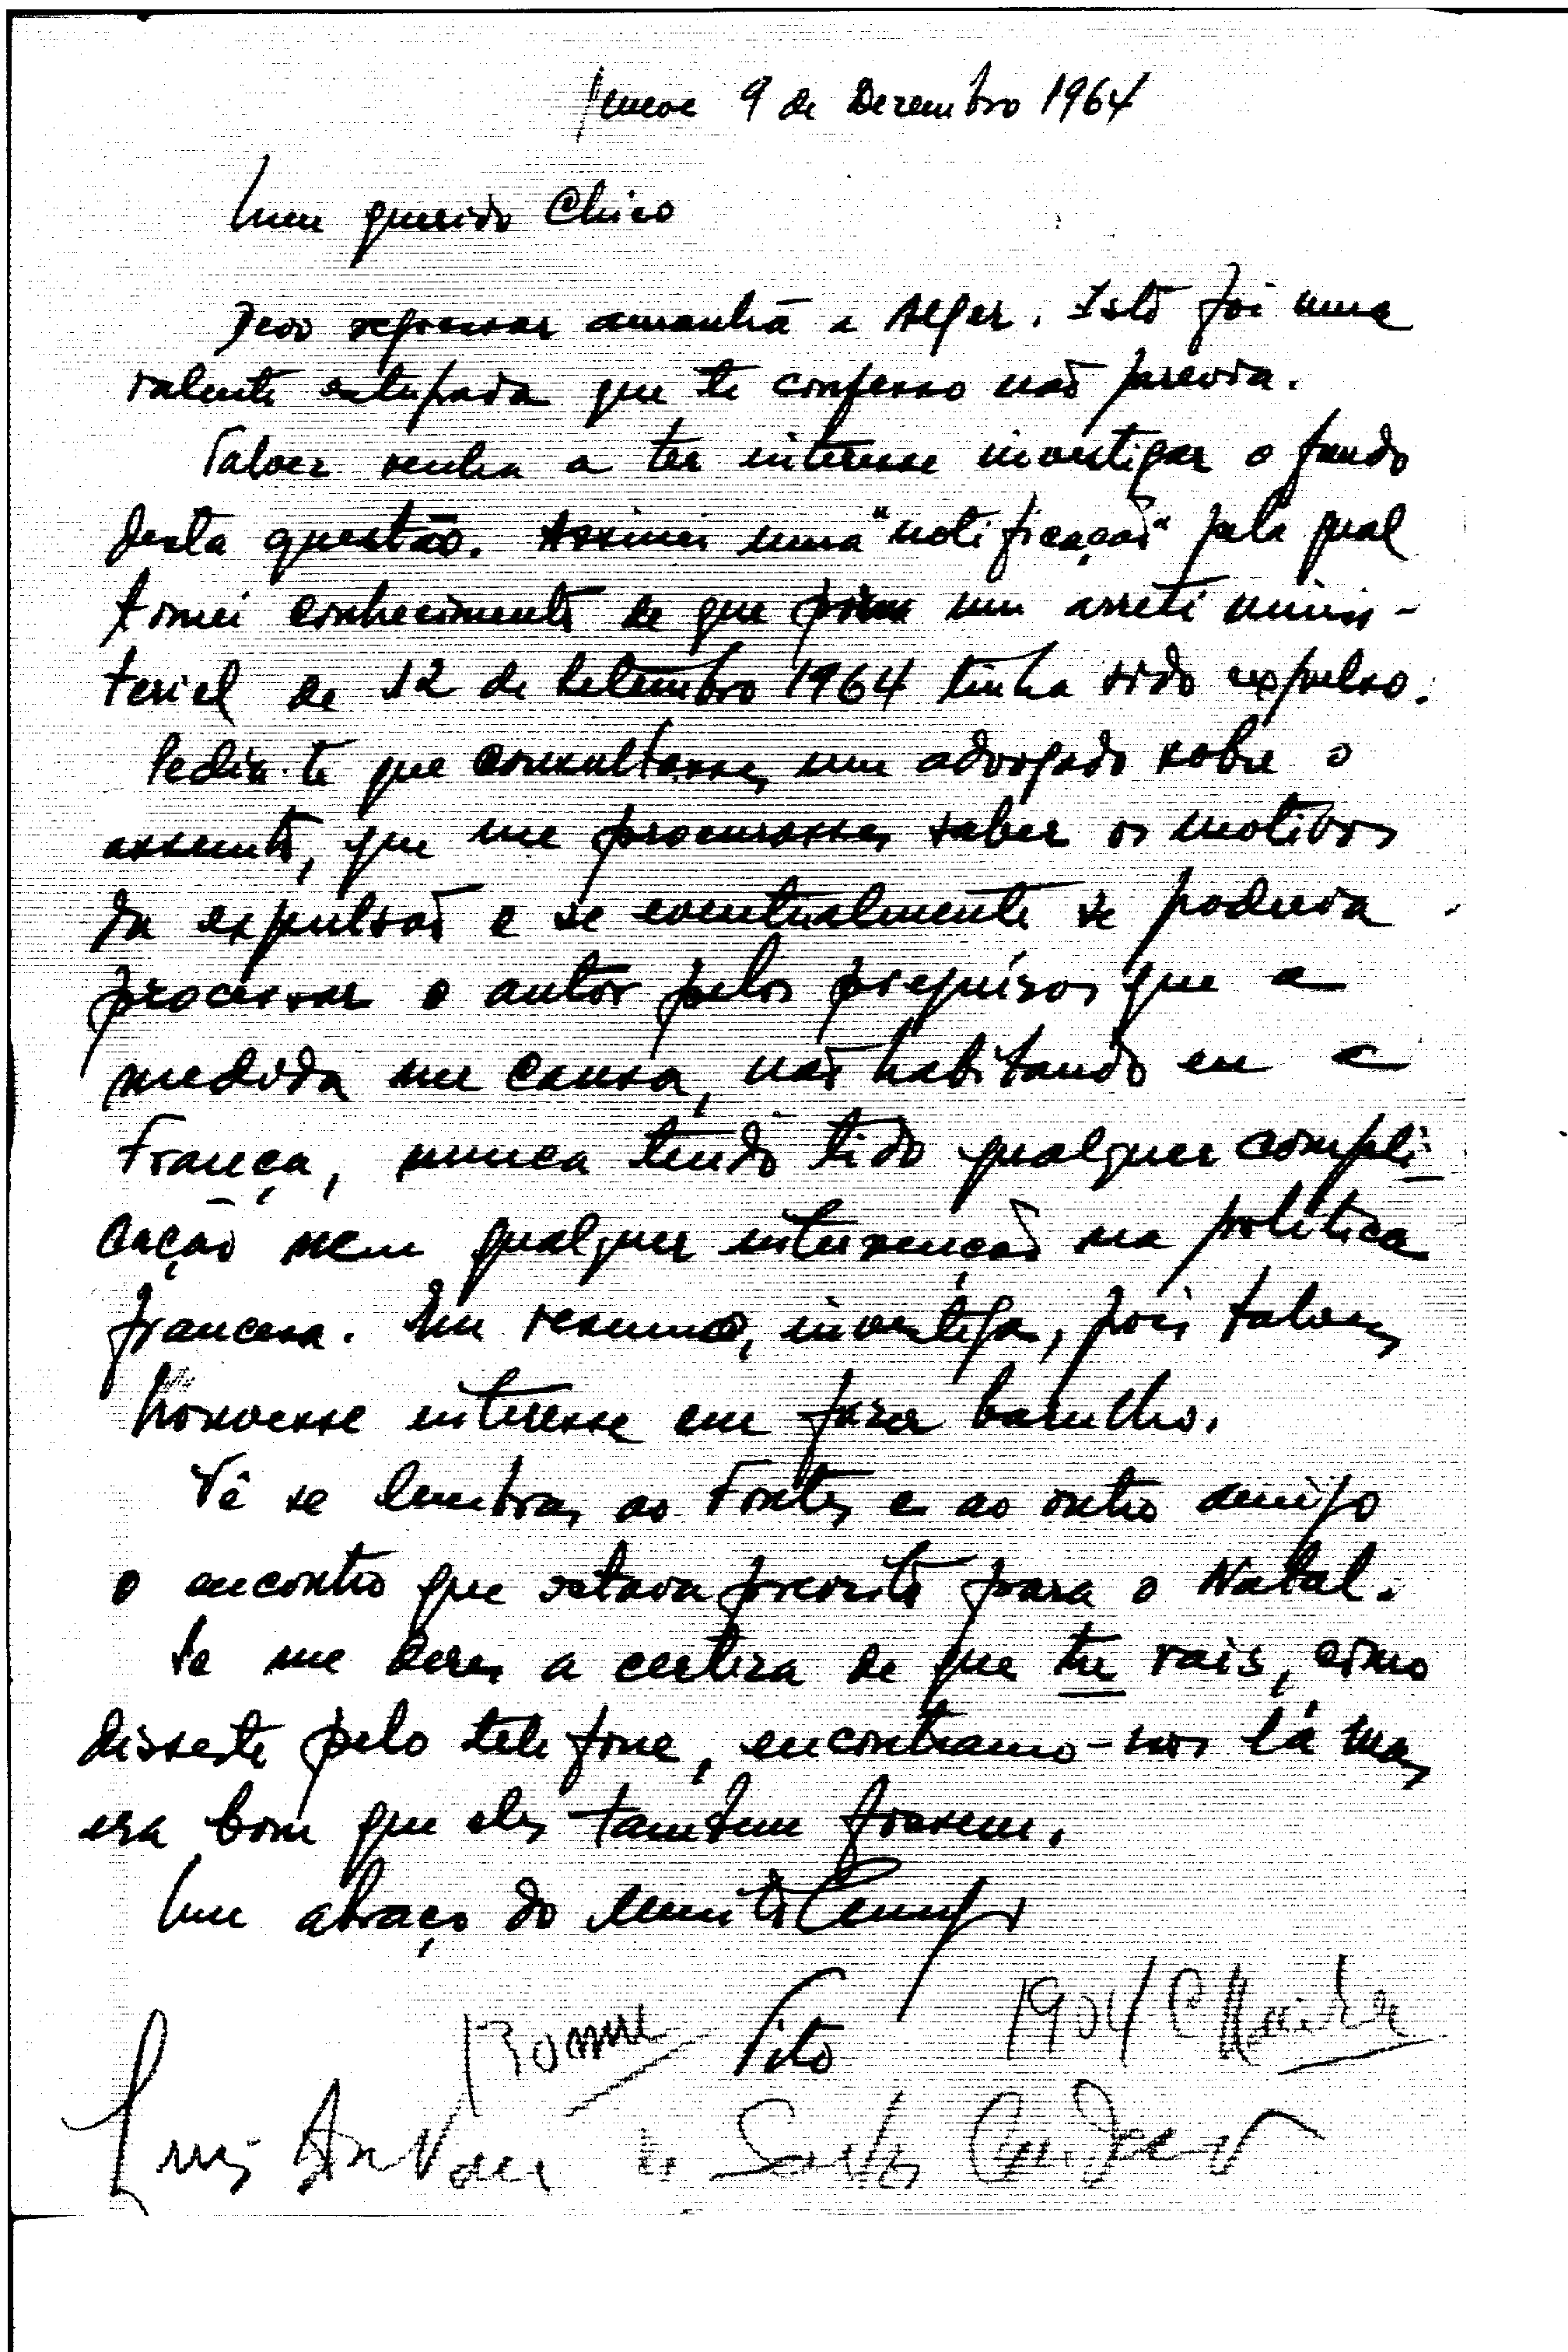 9 de Dezembro 1964
Meu querido Chico
Devo regressar amanhã a Alger. Isto foi uma
valente estupada que te confesso não previa.
Talvez venha a ter interesse investigar o fundo
desta questão. Assinei uma "notificação" pela qual
tomei conhecimento de que por um arreté minis-
teriel de 12 de Setembro 1964 tinha sido expulso.
Pedia-te que consultasses um advogado sobre o
assunto, que me procurasses saber os motivos
da expulsão e se eventualmente se poderia
processar o autor pelos prejuízos que a
medida me causa, não habitando eu a
França, nunca tendo tido qualquer compli-
cação nem qualquer intervenção na política
francesa. Em resumo, investiga, pois talvez
houvesse interesse em fazer barulho.
Vê se lembras ao Fontes e ao outro amigo
o encontro que estava previsto para o Natal.
Se me deres a certeza de que tu vais, como
disseste pelo telefone, encontramo-nos lá mas
era bom que eles também fossem.
Um abraço do muito amigo
Tito
1904
Luis